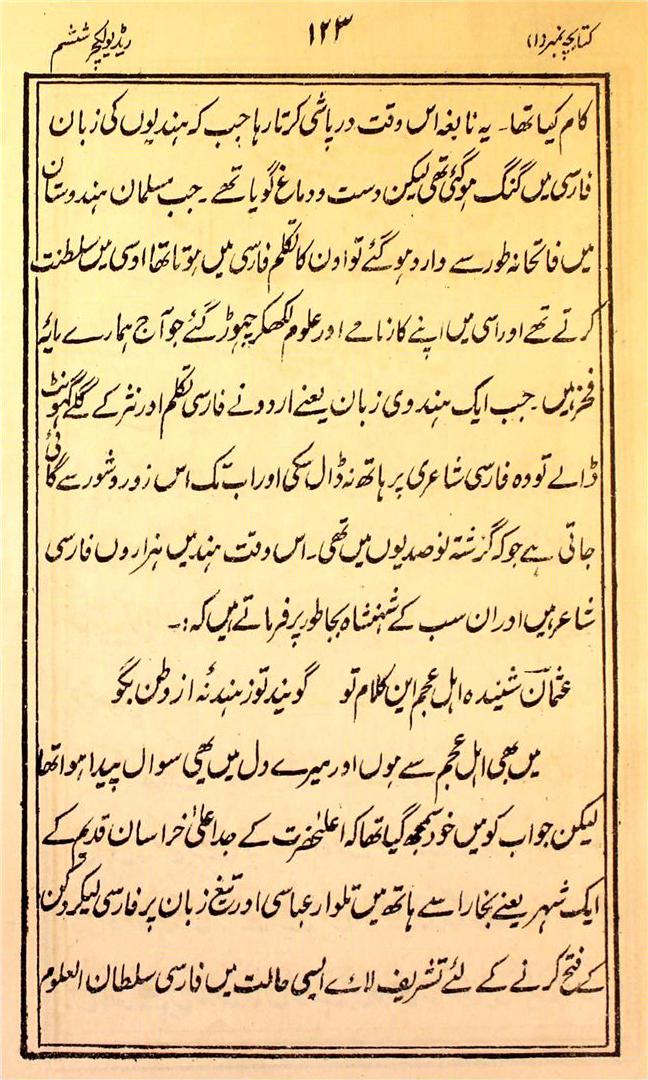 کتابچہ نمبر (۱) ۱۲۳ ریڈیو لکچر ششم
کام کیا تھا۔ یہ نابغہ اس وقت در پاشی کرتا رہا جب کہ ہندیوں کی زبان
فارسی میں گنگ ہوگئی تھی لیکن دست و دماغ گویا تھے۔ جب مسلمان ہندوستان
میں فاتحانہ طور سے وارد ہوگئے تو اون کا تکلم فارسی میں ہوتا تھا اوسی میں سلطنت
کرتے تھے اور اسی میں اپنے کارنامے اور علوم لکھکر چہوڑ گئے جو آج ہمارے مایۂ
فخر ہیں۔ جب ایک ہندوی زبان یعنے اردو نے فارسی تکلم اور نثر کے گلے گھونٹ
ڈالے تو وہ فارسی شاعری پر ہاتھ نہ ڈال سکی اور اب تک اس زور و شور سے گائی
جاتی ہے جو کہ گزشتہ نو صدیوں میں تھی۔ اس وقت ہند میں ہزاروں فارسی
شاعر ہیں اور ان سب کے شہنشاہ بجا طور پر فرماتے ہیں کہ :۔
عثمانؔ شنیدہ اہل عجم این کلام تو گویند تو ز ہند نۂ از وطن بگو
میں بھی اہل عجم سے ہوں اور میرے دل میں یہی سوال پیدا ہوا تھا
لیکن جواب کو میں خود سمجھ گیا تھا کہ اعلیٰحضرت کے جد اعلیٰ خراسان قدیم کے
ایک شہر یعنے بخارا سے ہاتھ میں تلوار عباسی اور تیغ زبان پر فارسی لیکر دکن
کے فتح کرنے کے لئے تشریف لائے ایسی حالت میں فارسی سلطان العلوم